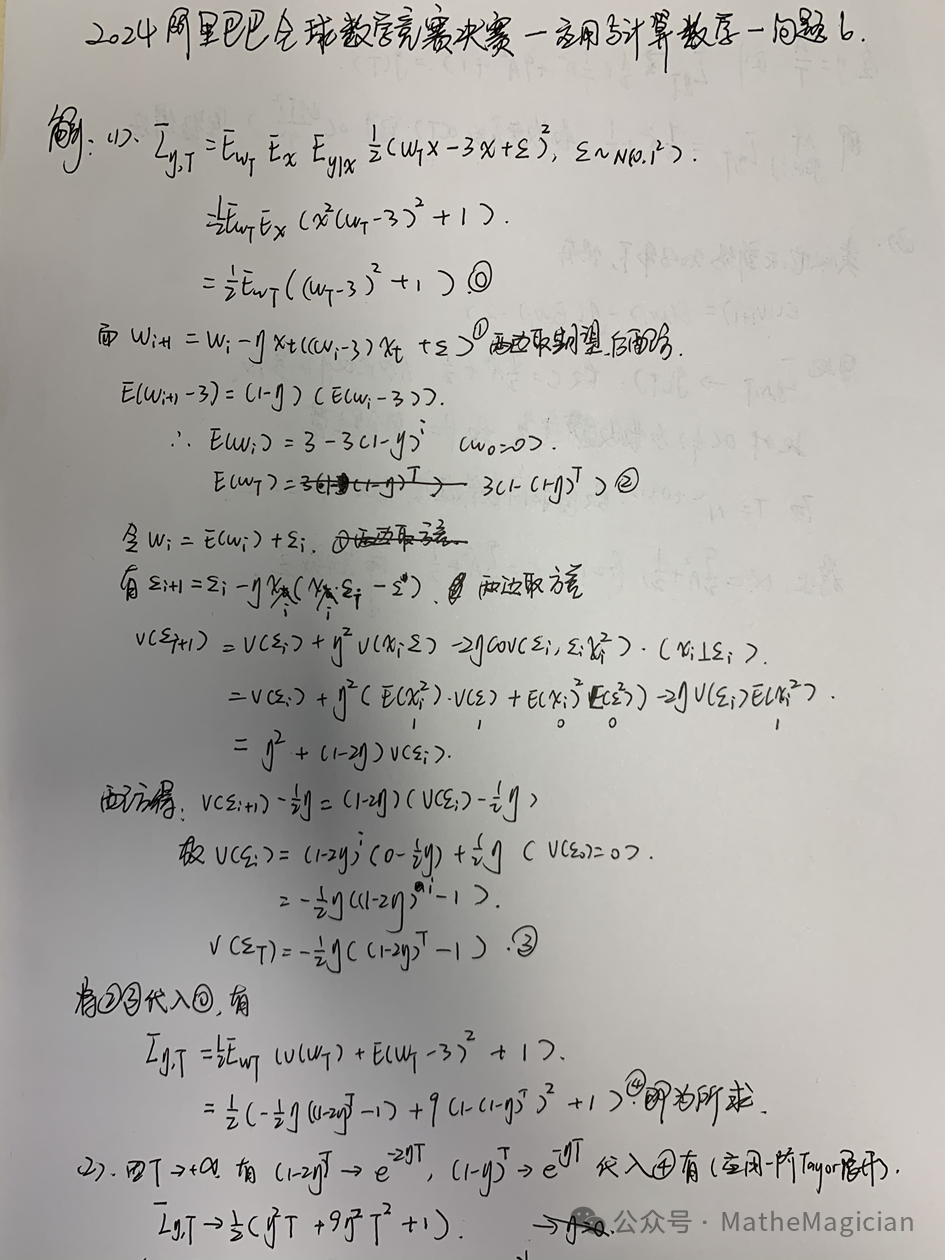 2024阿里巴巴全球数学竞赛决赛—应用与计算数学—问题6.
解: (1). L̄η,T = E_{w_T} E_x E_{y|x} ½(w_T x - 3x + ε)², ε~N(0,1²).
= ½E_{w_T}E_x (x²(w_T-3)² + 1).
= ½E_{w_T}((w_T-3)² + 1) ⓪
而 w_{i+1} = w_i - η x_t((w_i-3)x_t + ε) ① 两边取期望后配方.
E(w_{i+1}-3) = (1-η)(E(w_i-3)).
∴ E(w_i) = 3-3(1-η)^i (w_0=0).
E(w_T) = 3(1-(1-η)^T) ②
令 w_i = E(w_i) + ε_i.
有 ε_{i+1} = ε_i - η x_i(x_i ε_i - ε). 两边取方差
V(ε_{i+1}) = V(ε_i) + η² V(x_i ε) - 2η cov(ε_i, ε_i x_i²). (x_i⊥ε_i).
= V(ε_i) + η²(E(x_i²)·V(ε) + E(x_i)² E(ε²)) - 2η V(ε_i)E(x_i²).
1 1 0 0 1
= η² + (1-2η)V(ε_i).
配方得: V(ε_{i+1}) - ½η = (1-2η)(V(ε_i) - ½η)
故 V(ε_i) = (1-2η)^i(0-½η) + ½η (V(ε_0)=0).
= -½η((1-2η)^i - 1).
V(ε_T) = -½η((1-2η)^T - 1). ③
将②③代入⓪, 有
L̄η,T = ½E_{w_T}(V(w_T) + E(w_T-3)² + 1).
= ½(-½η((1-2η)^T-1) + 9(1-(1-η)^T)² + 1) ④ 即为所求.
(2). 因T→+∞, 有 (1-2η)^T → e^{-2ηT}, (1-η)^T → e^{-ηT} 代入④有(应用一阶Tayor展开).
L̄η,T → ½(η²T + 9η²T² + 1).
公众号 · MatheMagician